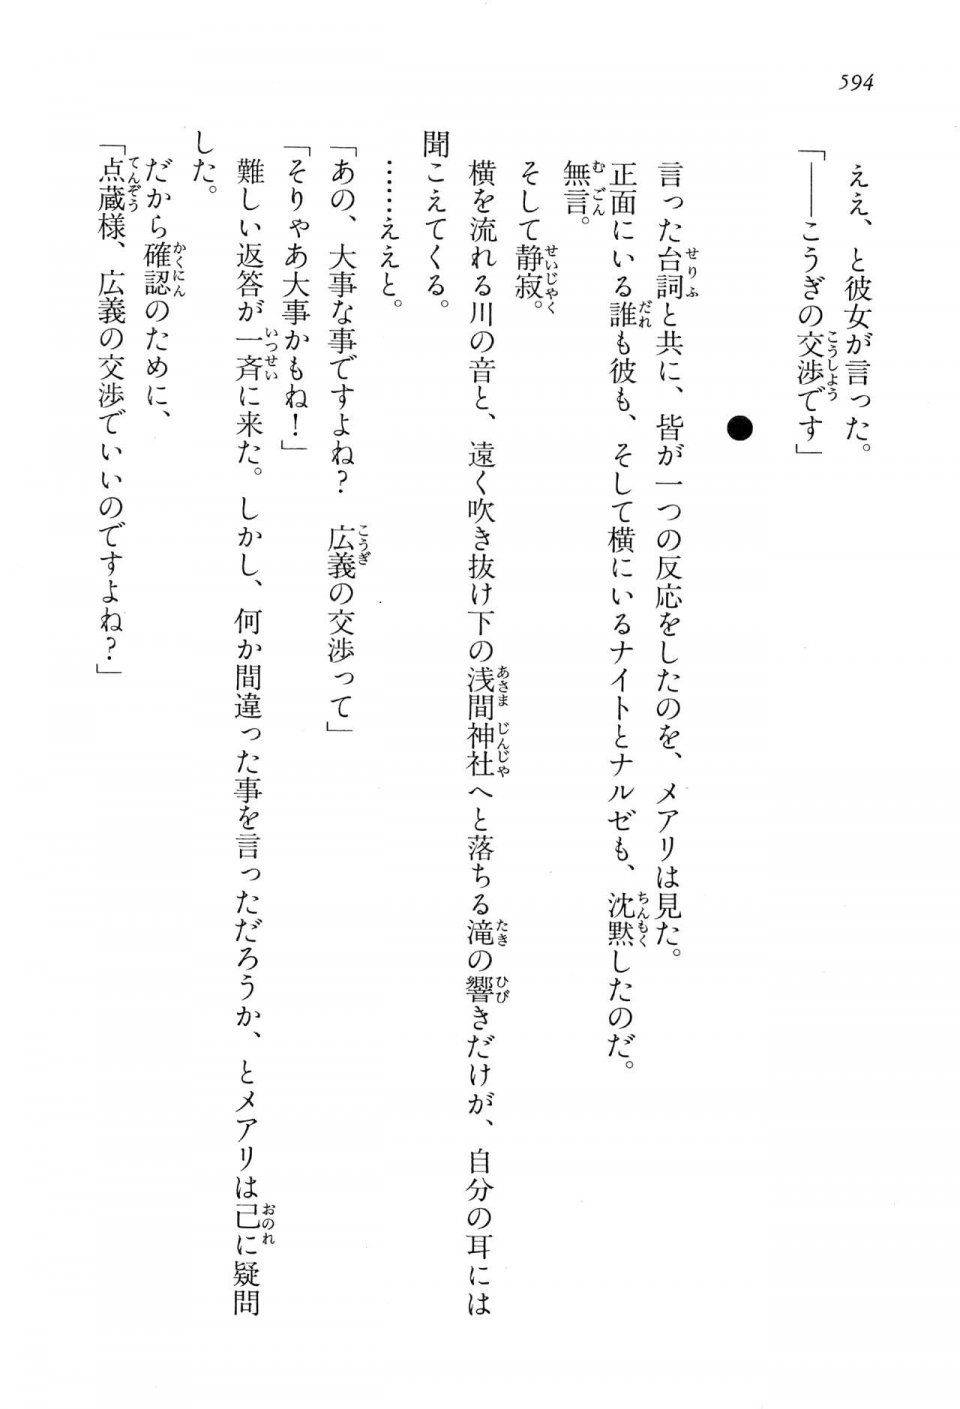 594
ええ、と彼女が言った。
「――こうぎの交渉です」
●
言った台詞と共に、皆が一つの反応をしたのを、メアリは見た。
正面にいる誰も彼も、そして横にいるナイトとナルゼも、沈黙したのだ。
無言。
そして静寂。
横を流れる川の音と、遠く吹き抜け下の浅間神社へと落ちる滝の響きだけが、自分の耳には
聞こえてくる。
……ええと。
「あの、大事な事ですよね？　広義の交渉って」
「そりゃあ大事かもね！」
難しい返答が一斉に来た。しかし、何か間違った事を言っただろうか、とメアリは己に疑問
した。
だから確認のために、
「点蔵様、広義の交渉でいいのですよね？」